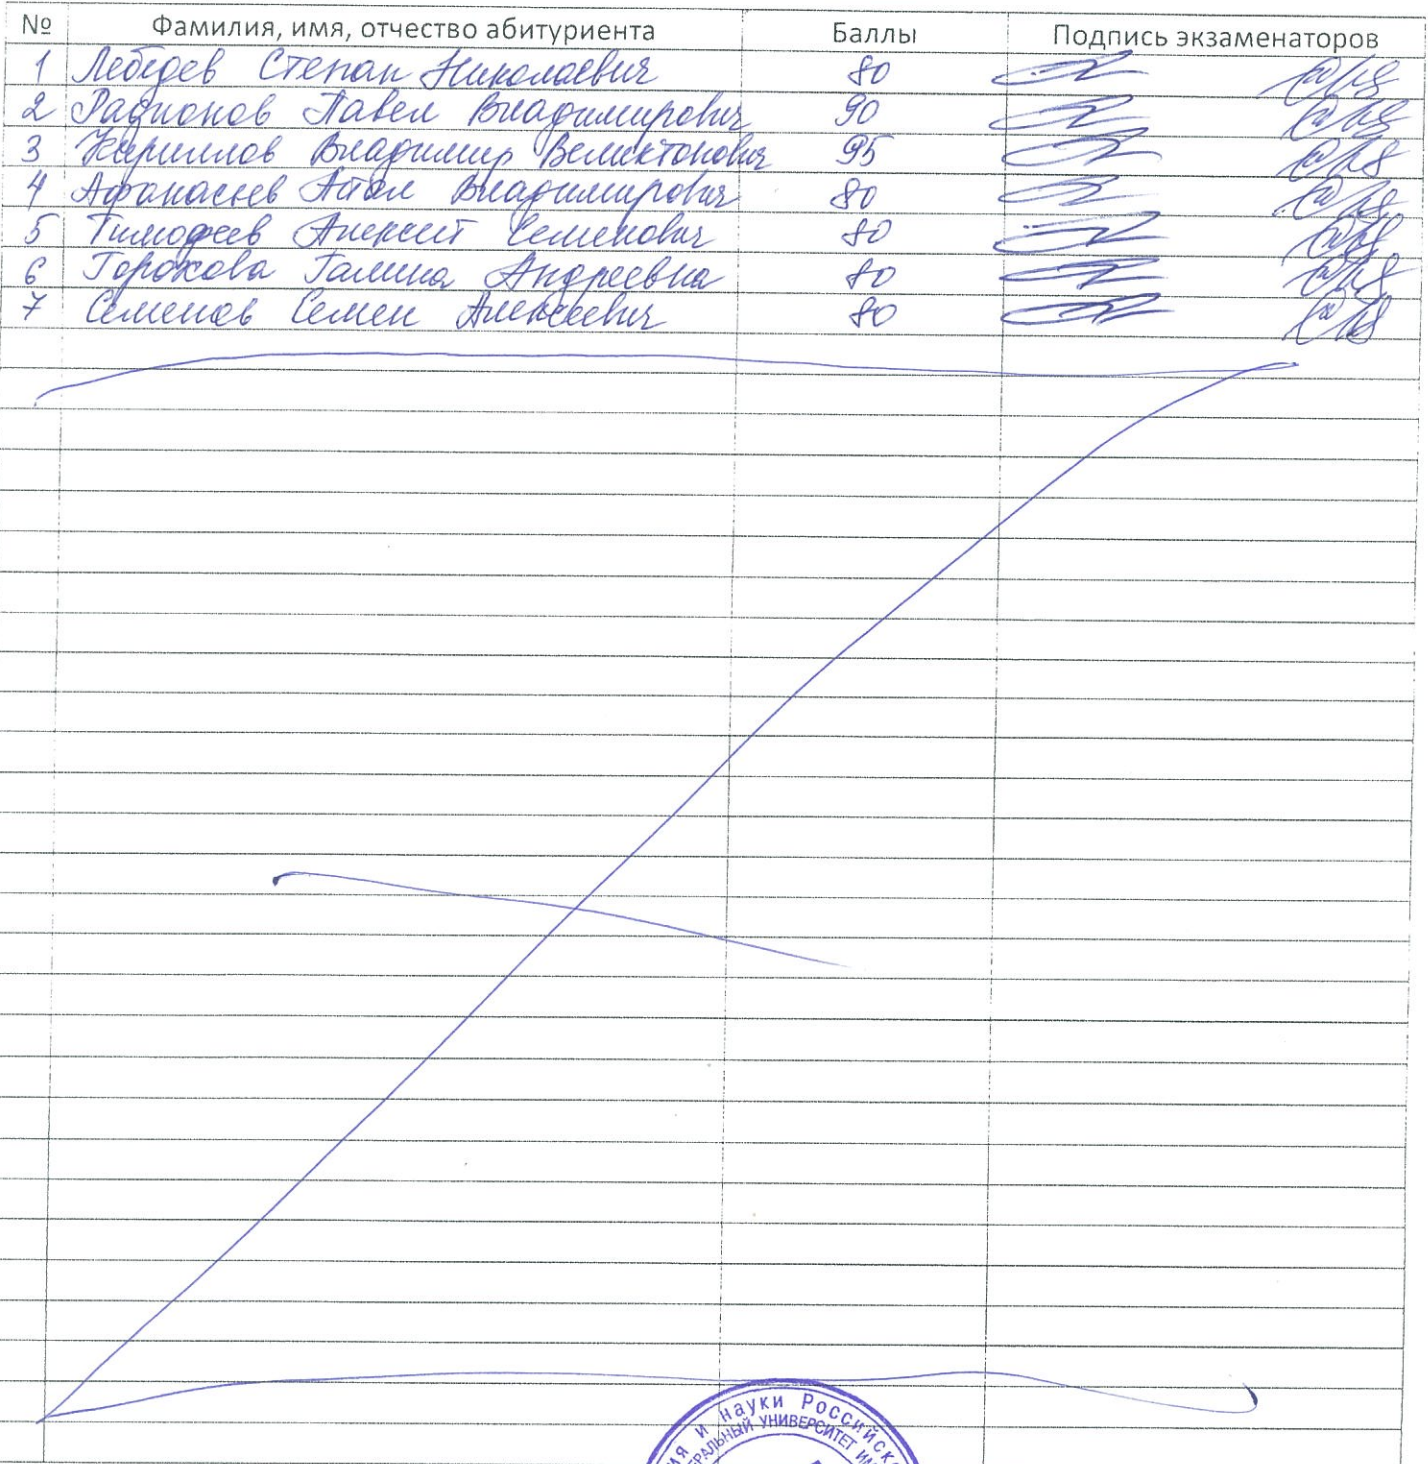 № Фамилия, имя, отчество абитуриента Баллы Подпись экзаменаторов
1 Лебедев Степан Николаевич 80
2 Радионов Павел Владимирович 90
3 Кириллов Владимир 95
4 Афанасьев Айал Владимирович 80
5 Тимофеев Алексей Семенович 80
6 Горохова Галина Андреевна 80
7 Семенов Семен Алексеевич 80
и науки Российско
УНИВЕРСИТЕТ